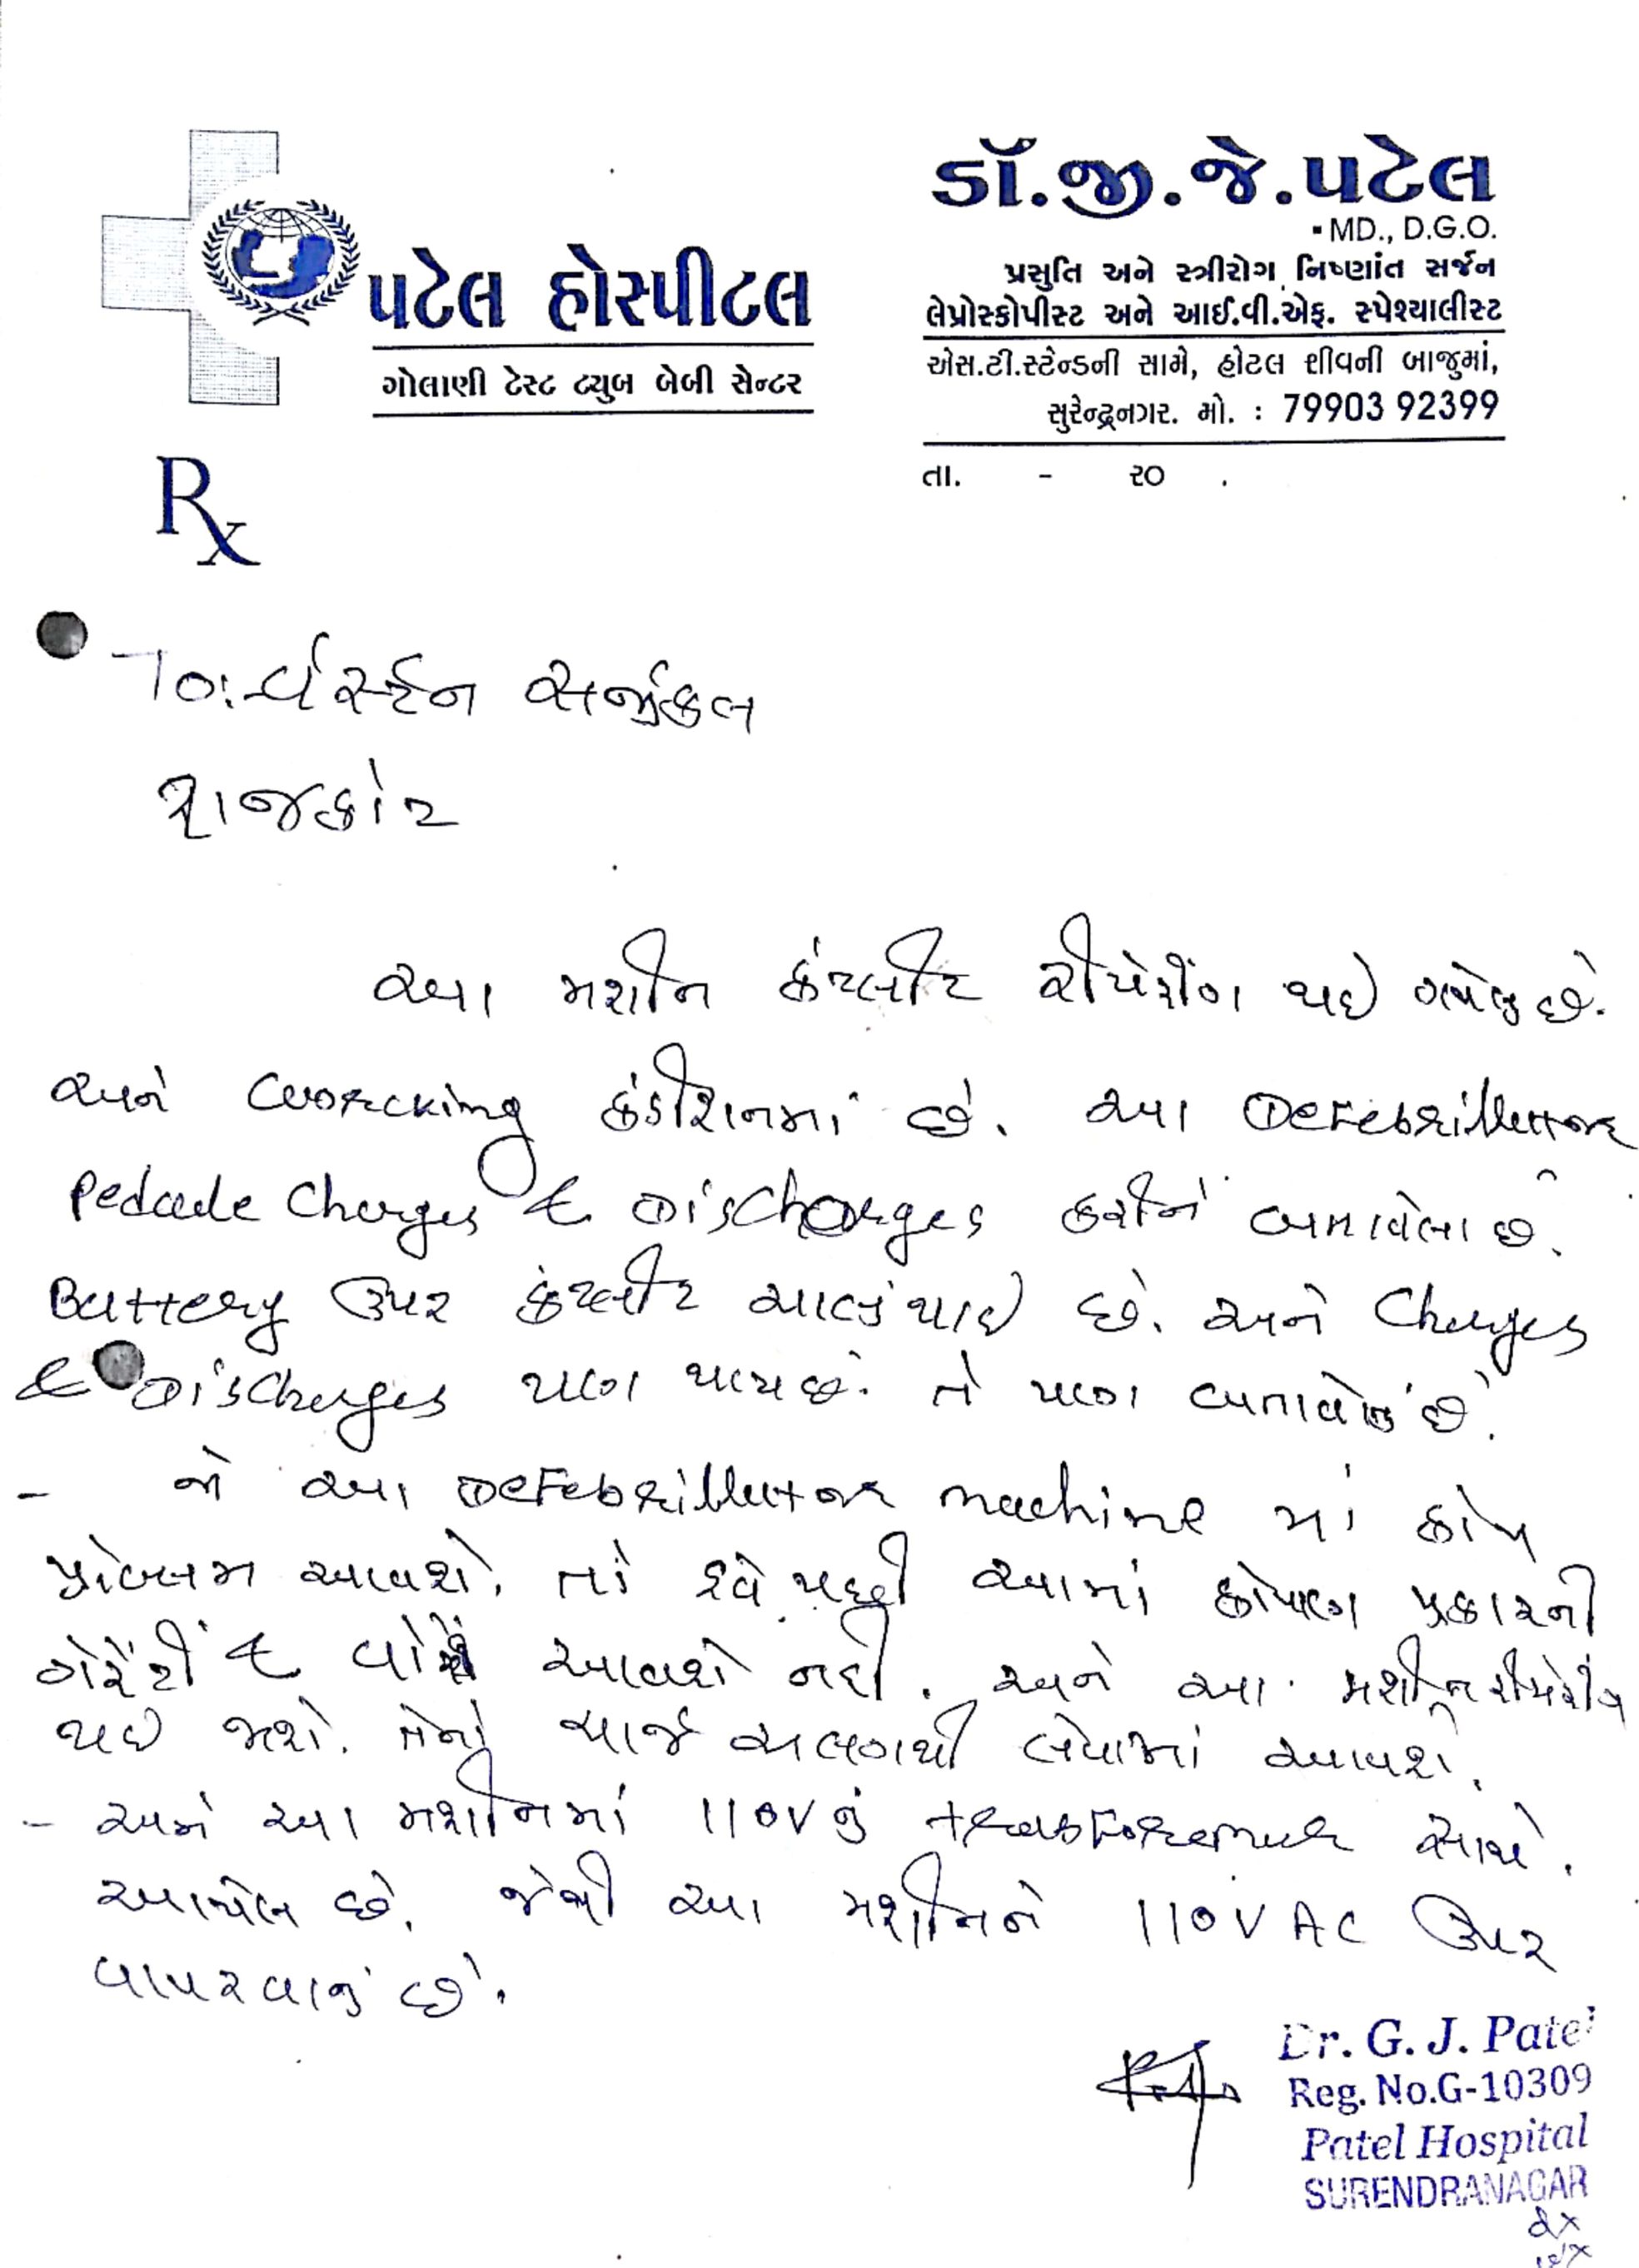 ડૉ.જી.જે.પટેલ
▪MD., D.G.O.
પ્રસુતિ અને સ્ત્રીરોગ નિષ્ણાંત સર્જન
લેપ્રોસ્કોપીસ્ટ અને આઈ.વી.એફ. સ્પેશ્યાલીસ્ટ
પટેલ હોસ્પીટલ
ગોલાણી ટેસ્ટ ટ્યુબ બેબી સેન્ટર
એસ.ટી.સ્ટેન્ડની સામે, હોટલ શીવની બાજુમાં,
સુરેન્દ્રનગર. મો. : 79903 92399
તા. - ૨૦ .
Rx
To: વેસ્ટર્ન સર્જીકલ
રાજકોટ
આ મશીન કંપ્લીટ રીપેરીંગ થઇ ગયેલ છે.
અને Worcking કંડીશનમાં છે. આ Defebrillator
Pedade Charges & Discharges કરીને બતાવેલા છે.
Battery ઉપર કંપ્લીટ ચાલું થાઇ છે. અને Charges
& Discharges પણ થાય છે. તે પણ બતાવેલું છે.
- જો આ Defebrillator machine માં કોય
પ્રોબ્લમ આવશે. તો હવે પછી આમાં કોપણ પ્રકારની
ગેરેંટી & આવશે નહી. અને આ મશીન રીપેરીંગ
થઇ જશે. તેનો ચાર્જ અલગથી લેવામાં આવશે.
- અને આ મશીનમાં 110V નું સાથે.
આપેલ છે. જેથી આ મશીનને 110V AC ઉપર
વાપરવાનું છે.
Dr. G. J. Patel
Reg. No.G-10309
Patel Hospital
SURENDRANAGAR